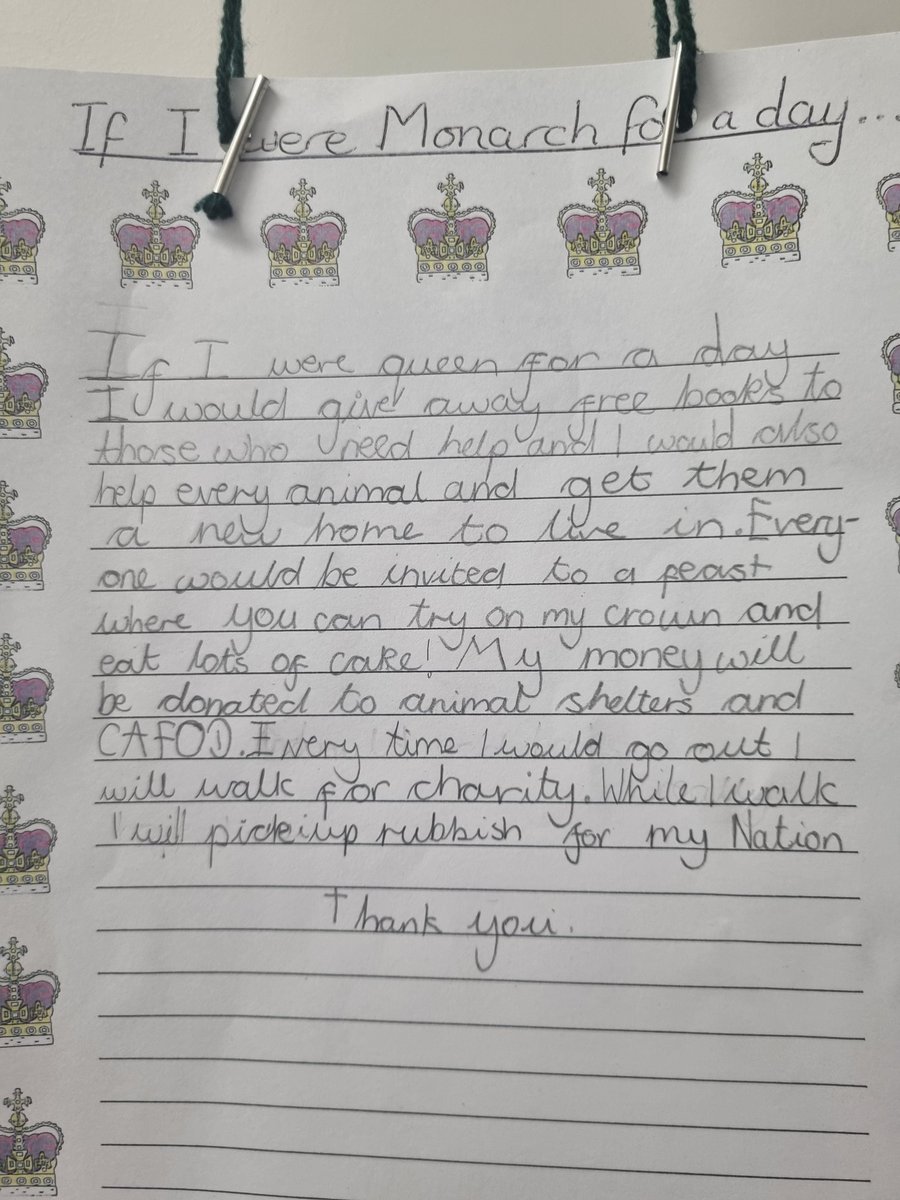 If I were Monarch for a day...
If I were queen for a day
I would give away free books to
those who need help and I would also
help every animal and get them
a new home to live in. Every-
one would be invited to a feast
where you can try on my crown and
eat lots of cake! My money will
be donated to animal shelters and
CAFOD. Every time I would go out I
will walk for charity. While I walk
I will pick up rubbish for my Nation
Thank you.